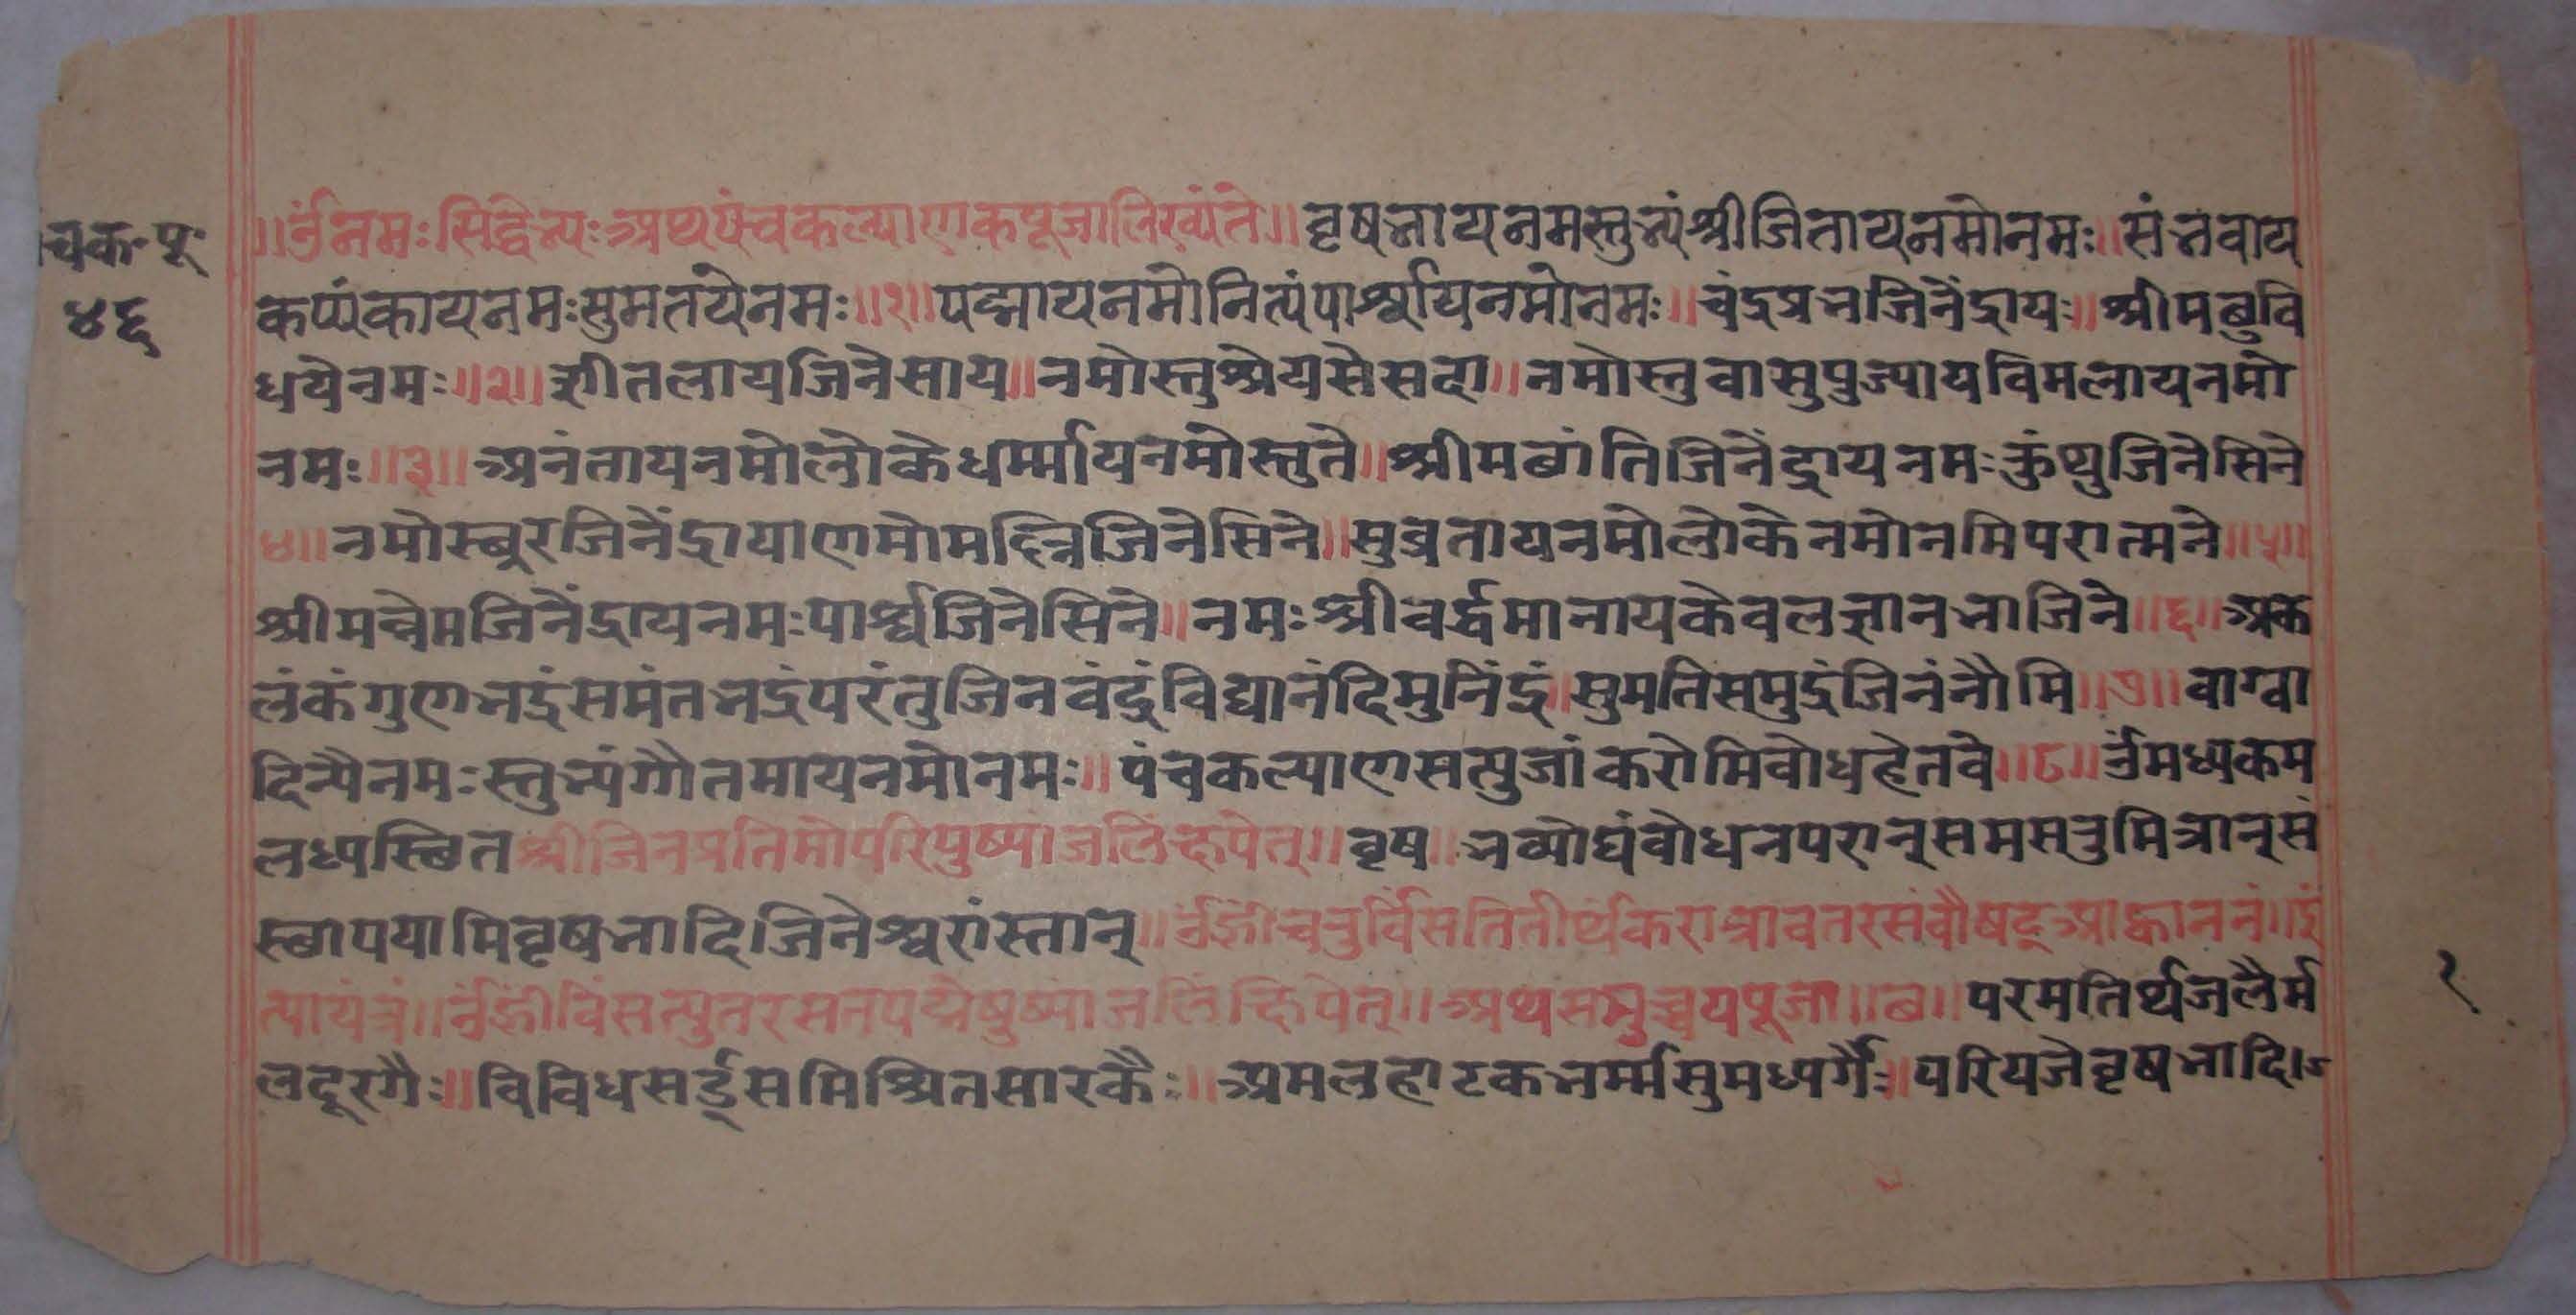 चक॰पू॰
४६
॥ॐनमःसिद्धेभ्यःअथपंचकल्याणकपूजालिख्यंते॥वृषभायनमस्तुभ्यंश्रीजितायनमोनमः॥संभवाय
कप्पंकायनमःसुमतयेनमः॥१॥पद्मायनमोनित्यंपार्श्वायनमोनमः॥चंद्रप्रभजिनेंद्रायः॥श्रीमछुवि
धयेनमः॥२॥शीतलायजिनेसाय॥नमोस्तुश्रेयसेसदा॥नमोस्तुवासुपुज्यायविमलायनमो
नमः॥३॥अनंतायनमोलोकेधर्म्मायनमोस्तुते॥श्रीमछांतिजिनेंद्रायनमःकुंथुजिनेसिने
४॥नमोस्त्वुरजिनेंद्रायाणमोमह्निजिनेसिने॥सुव्रतायनमोलोकेनमोनमिपरात्मने॥५॥
श्रीमन्नेमजिनेंद्रायनमःपार्श्वजिनेसिने॥नमःश्रीवर्द्धमानायकेवलज्ञानभाजिने॥६॥अक
लंकंगुणभद्रंसमंतभद्रंपरंतुजिनवंद्रंविद्यानंदिमुनिंद्रं॥सुमतिसमुद्रंजिनंनौमि॥७॥वाग्वा
दिन्यैनमःस्तुभ्यंगौतमायनमोनमः॥पंचकल्याणसत्पुजांकरोमिवोधहेतवे॥८॥ॐमध्यकम
लध्यस्थितश्रीजिनप्रतिमोपरिपुष्पांजलिंक्षपेत्॥वृष॥भव्योघंवोधनपरान्समसत्रुमित्रान्सं
स्थापयामिवृषभादिजिनेश्वरांस्तान्॥ॐह्रींचतुर्विंसतितीर्थंकरात्रावतरसंवौषट्आह्वाननं॥इ
त्यायंत्रं॥ॐह्रींविंसत्पुतरसतपद्मेषुष्पांजलिंक्षिपेत्॥अथसमुच्चयपूजा॥छ॥परमतिर्थजलैर्म
लदूरगैः॥विविधसर्द्रुसमिश्रितसारकैः॥अमलहाटकभर्म्मसुमध्यर्गैः॥परियजेवृषभादि।ज
१